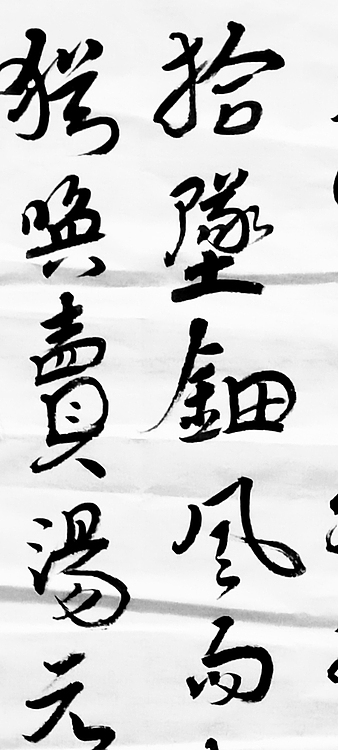 拾墜鈿風雨
猶喚賣湯元